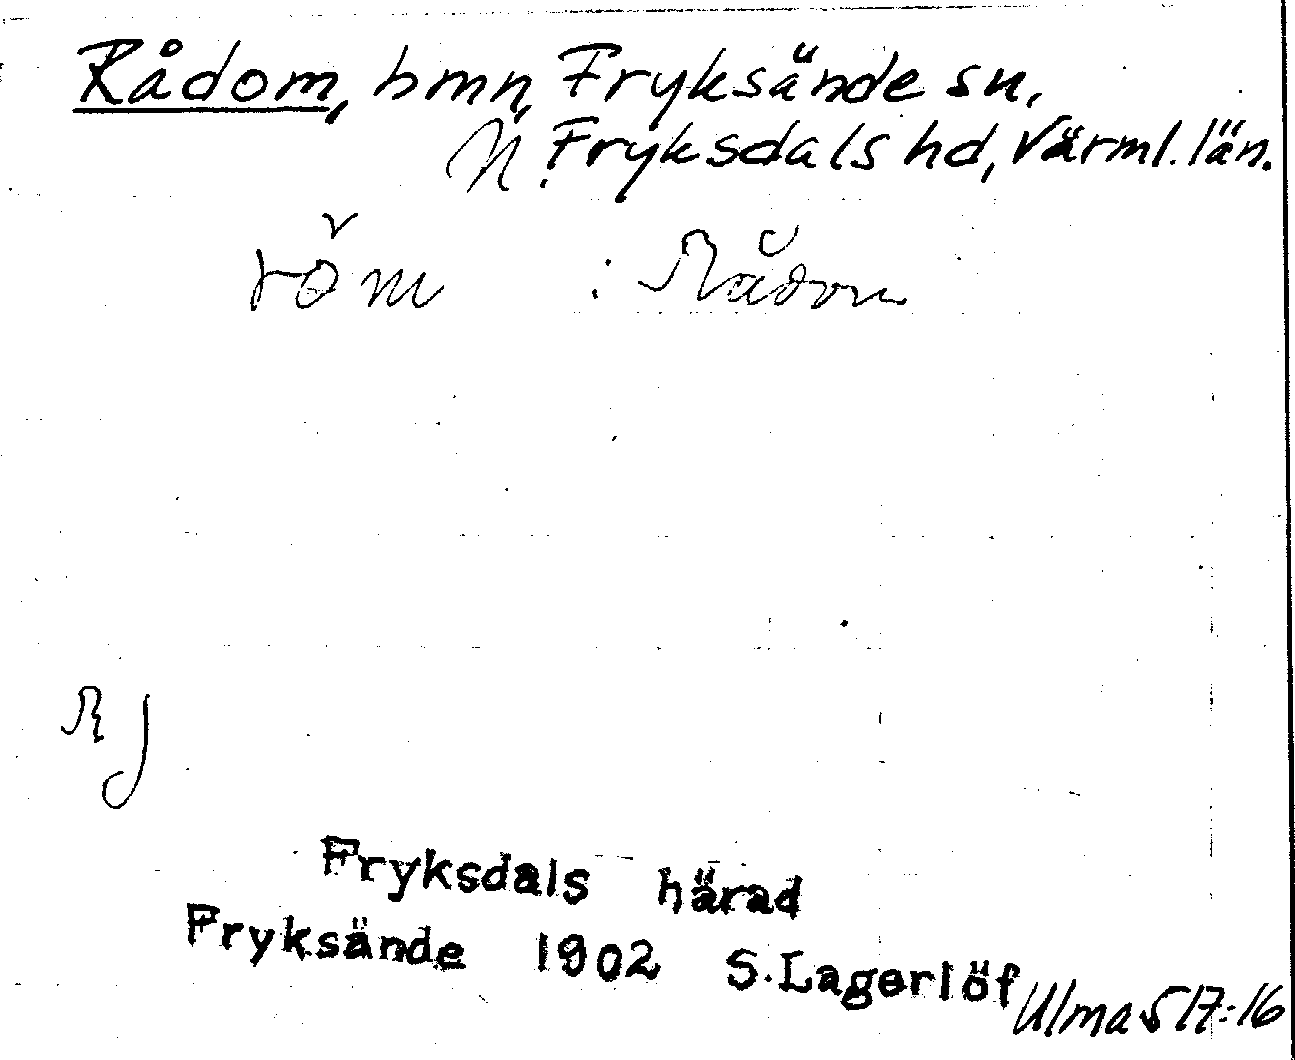 Rådom, bmn, Fryksände sn,
N. Fryksdals hd, Värml. län.
rǒm : Rådom
RJ
Fryksdals härad
Fryksände 1902 S. Lagerlöf
Ulma 517:16